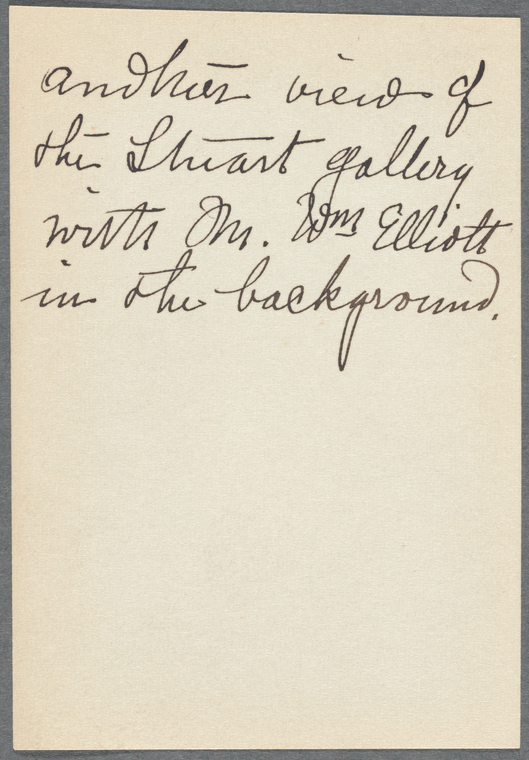 another view of
the Stuart gallery
with Mr. Wm Elliott
in the background.